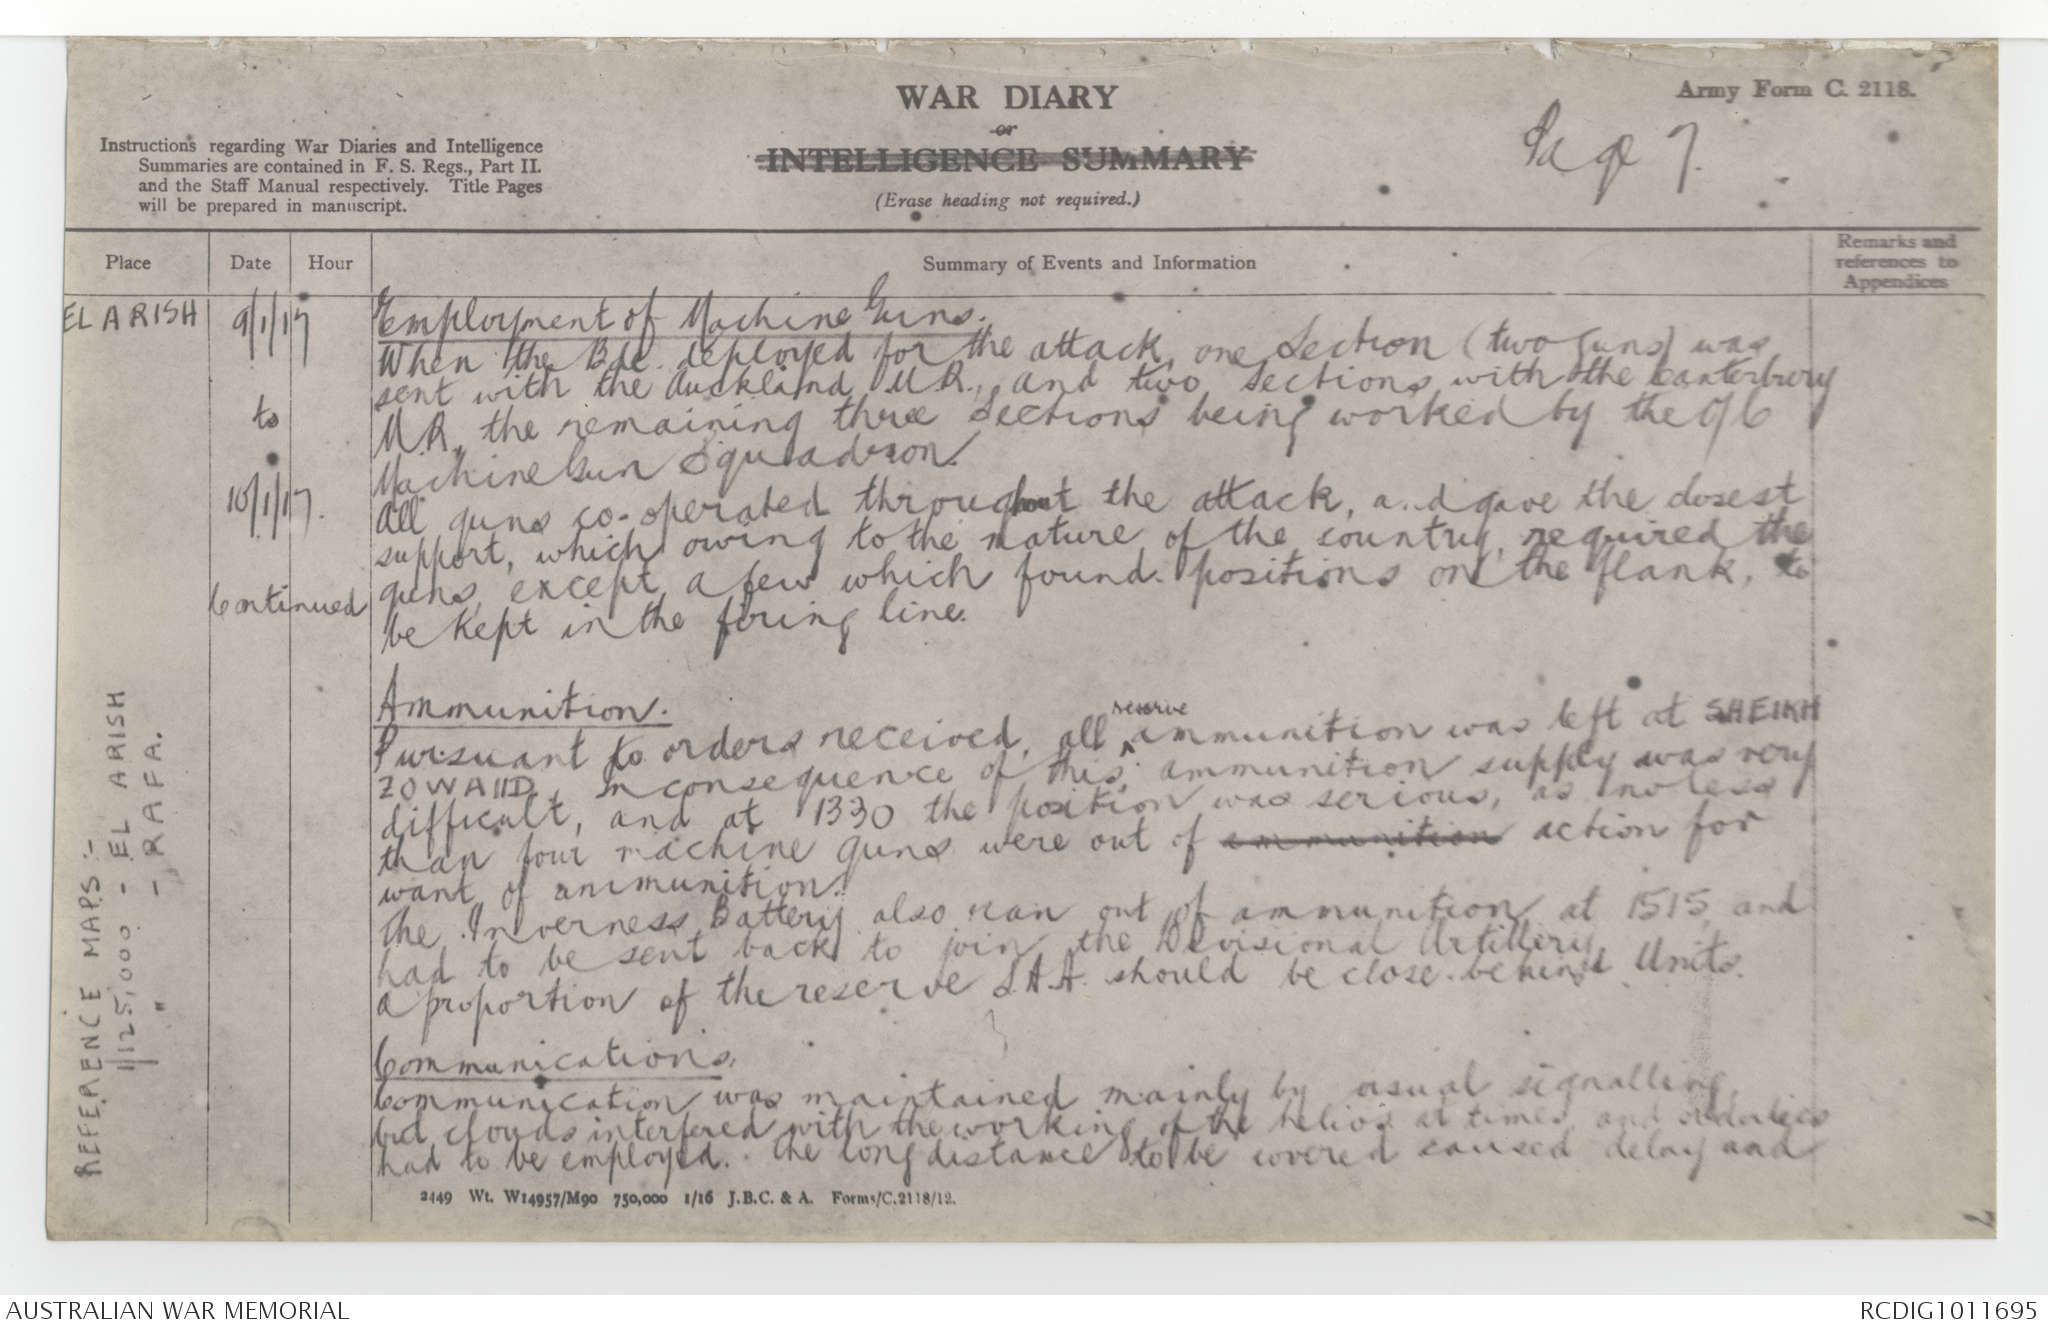 WAR DIARY
or
INTELLIGENCE SUMMARY
(Erase heading not required.)
Army Form C. 2118.
Page 7.
Instructions regarding War Diaries and Intelligence
Summaries are contained in F. S. Regs., Part II.
and the Staff Manual respectively. Title Pages
will be prepared in manuscript.
Place
Date
Hour
Summary of Events and Information
Remarks and
references to
Appendices
EL ARISH
9/1/17
to
10/1/17.
Continued
Employment of Machine Guns.
When the Bde. deployed for the attack, one Section (two guns) was
sent with the Auckland M.R., and two Sections with the Canterbury
M.R. the remaining three Sections being worked by the O/C
Machine Gun Squadron.
All guns co-operated throughout the attack, and gave the closest
support, which owing to the nature of the country, required the
guns, except a few which found positions on the flank, to
be kept in the firing line.
Ammunition.
Pursuant to orders received, all reserve ammunition was left at SHEIKH
ZOWAIID. In consequence of this, ammunition supply was very
difficult, and at 1330 the position was serious, as no less
than four machine guns were out of ammunition action for
want of ammunition.
The Inverness Battery also ran out of ammunition at 1515, and
had to be sent back to join the Divisional Artillery.
A proportion of the reserve S.A.A. should be close behind Units.
Communications.
Communication was maintained mainly by visual signalling,
but clouds interfered with the working of the helios at times and orderlies
had to be employed. The long distance to be covered caused delay and
REFERENCE MAPS:-
1/125,000 - EL ARISH
" - RAFA.
2449 Wt. W14957/M90 750,000 1/16 J.B.C. & A. Forms/C.2118/12.
AUSTRALIAN WAR MEMORIAL
RCDIG1011695